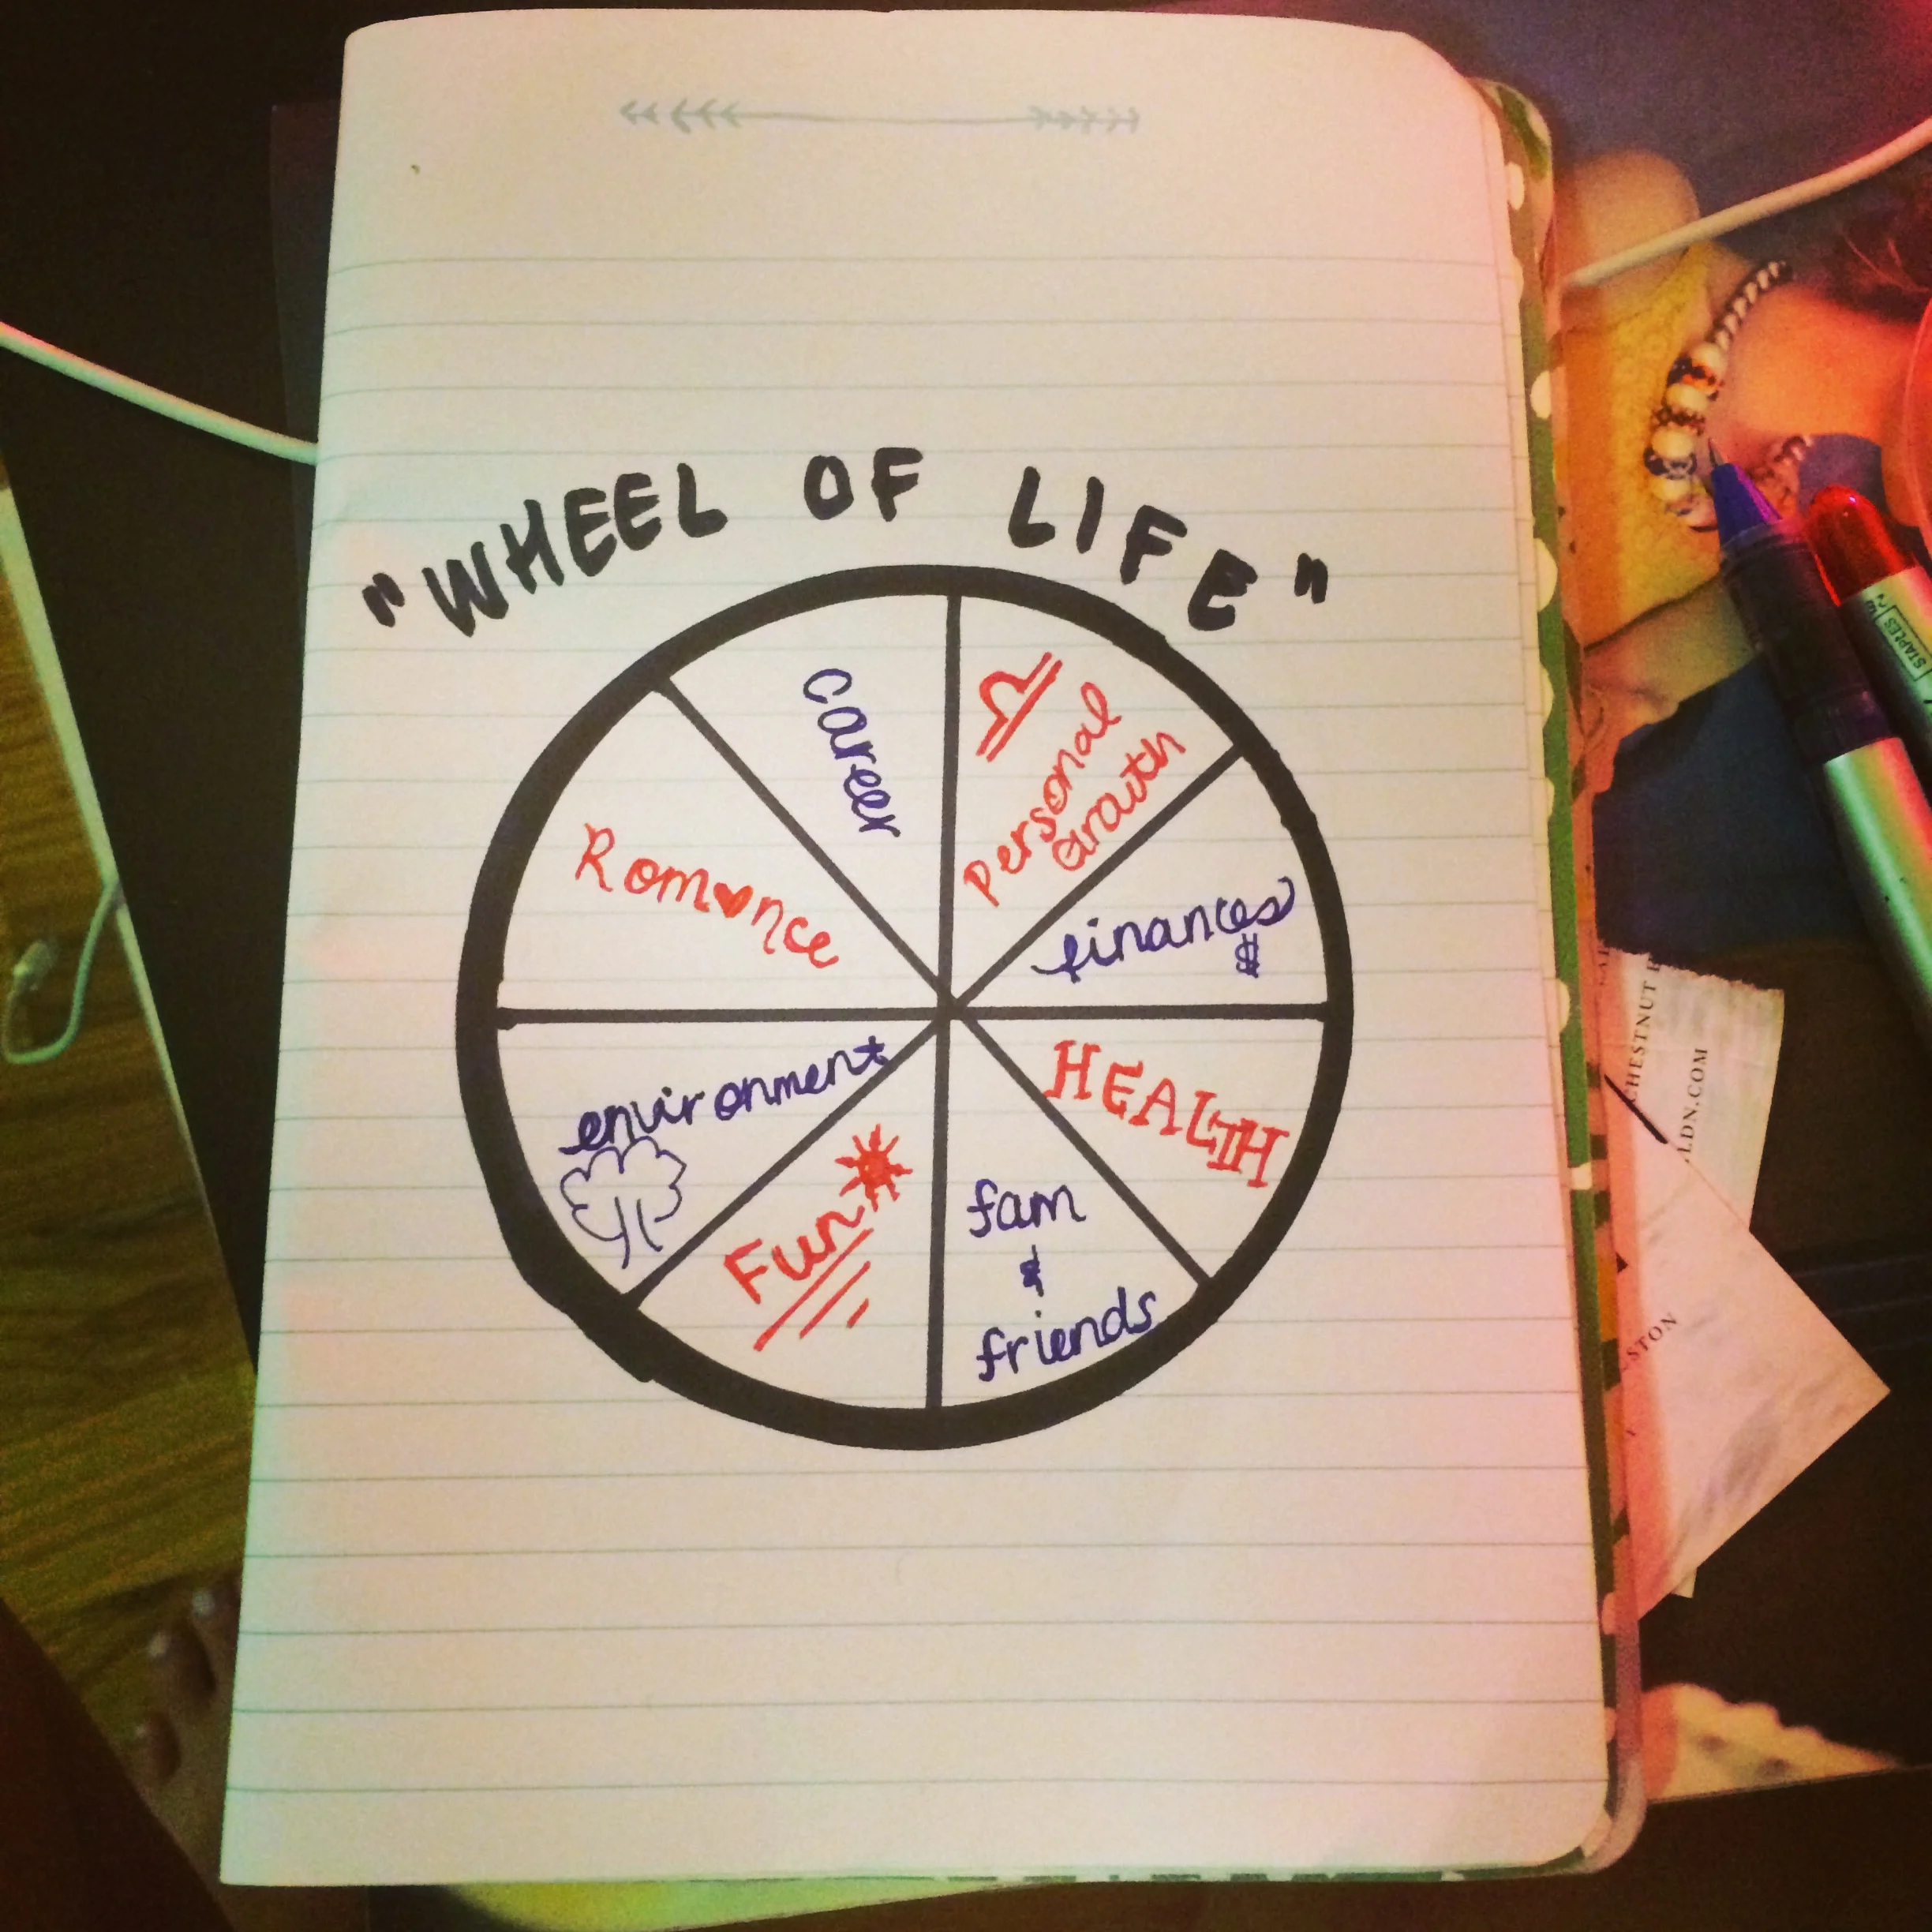 "WHEEL OF LIFE"
career
Personal
Growth
finances
$
HEALTH
fam
&
friends
Fun
environment
Rom♥nce
STAPLES
CHESTNUT
LDN.COM
STON